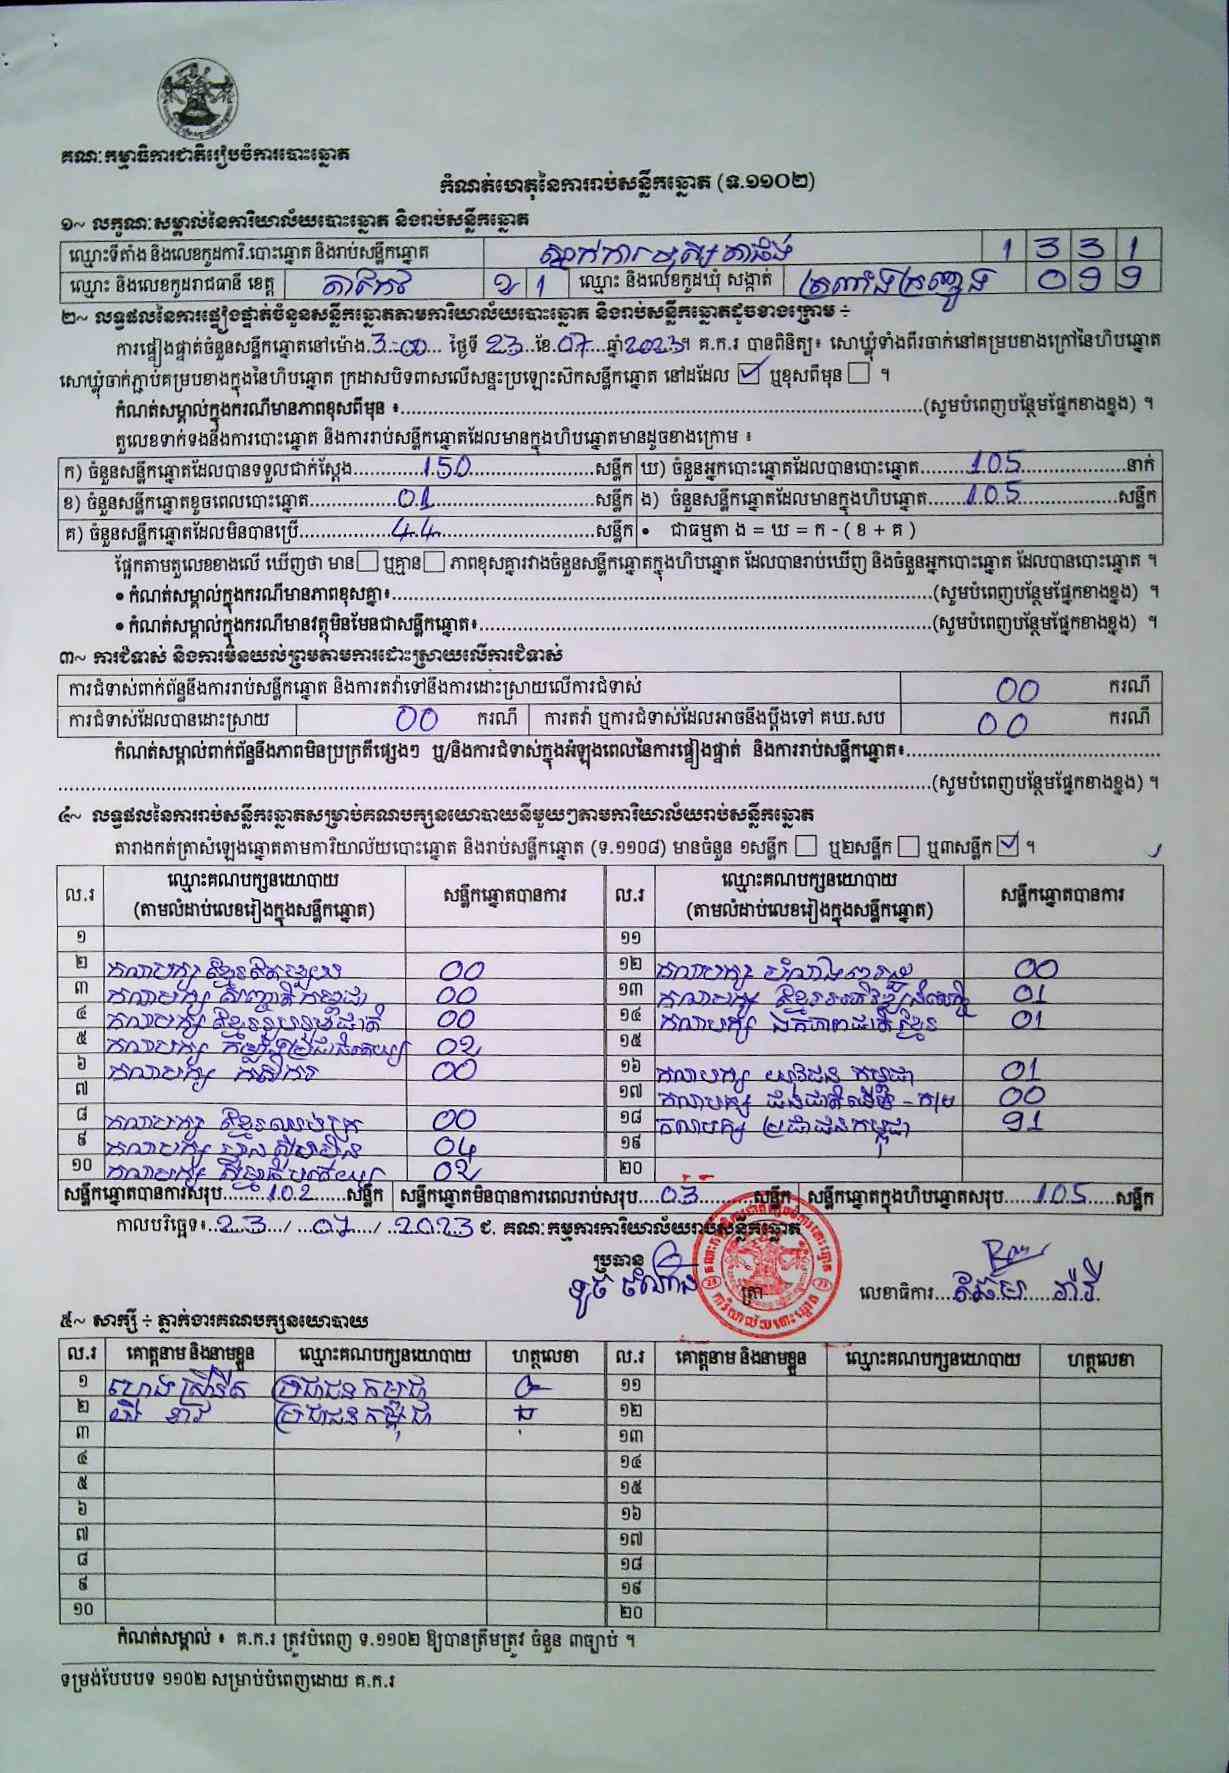 គណៈកម្មាធិការជាតិរៀបចំការបោះឆ្នោត
កំណត់ហេតុនៃការរាប់សន្លឹកឆ្នោត (ទ.១១០២)
១~ លក្ខណៈសម្គាល់នៃការិយាល័យបោះឆ្នោត និងរាប់សន្លឹកឆ្នោត
ឈ្មោះទីតាំង និងលេខកូដការិ.បោះឆ្នោត និងរាប់សន្លឹកឆ្នោត 1 3 3 1
ឈ្មោះ និងលេខកូដរាជធានី ខេត្ត តាកែវ 2 1 ឈ្មោះ និងលេខកូដឃុំ សង្កាត់ ត្រពាំងក្រញូង 0 9 9
២~ លទ្ធផលនៃការផ្ទៀងផ្ទាត់ចំនួនសន្លឹកឆ្នោតតាមការិយាល័យបោះឆ្នោត និងរាប់សន្លឹកឆ្នោតដូចខាងក្រោម ÷
ការផ្ទៀងផ្ទាត់ចំនួនសន្លឹកឆ្នោតនៅម៉ោង.3-00... ថ្ងៃទី 23..ខែ.07...ឆ្នាំ2023។ គ.ក.រ បានពិនិត្យ៖ សោឃ្លុំទាំងពីរចាក់នៅគម្របខាងក្រៅនៃហិបឆ្នោត
សោឃ្លុំចាក់ភ្ជាប់គម្របខាងក្នុងនៃហិបឆ្នោត ក្រដាសបិទពាសលើសន្ទះប្រឡោះស៊កសន្លឹកឆ្នោត នៅដដែល ☑ ឬខុសពីមុន ☐ ។
កំណត់សម្គាល់ក្នុងករណីមានភាពខុសពីមុន ៖......(សូមបំពេញបន្ថែមផ្នែកខាងខ្នង) ។
តួលេខទាក់ទងនឹងការបោះឆ្នោត និងការរាប់សន្លឹកឆ្នោតដែលមានក្នុងហិបឆ្នោតមានដូចខាងក្រោម ៖
ក) ចំនួនសន្លឹកឆ្នោតដែលបានទទួលជាក់ស្តែង......150......សន្លឹក ឃ) ចំនួនអ្នកបោះឆ្នោតដែលបានបោះឆ្នោត......105......នាក់
ខ) ចំនួនសន្លឹកឆ្នោតខូចពេលបោះឆ្នោត......01......សន្លឹក ង) ចំនួនសន្លឹកឆ្នោតដែលមានក្នុងហិបឆ្នោត......105......សន្លឹក
គ) ចំនួនសន្លឹកឆ្នោតដែលមិនបានប្រើ......44......សន្លឹក • ជាធម្មតា ង = ឃ = ក - ( ខ + គ )
ផ្អែកតាមតួលេខខាងលើ ឃើញថា មាន☐ ឬគ្មាន☐ ភាពខុសគ្នារវាងចំនួនសន្លឹកឆ្នោតក្នុងហិបឆ្នោត ដែលបានរាប់ឃើញ និងចំនួនអ្នកបោះឆ្នោត ដែលបានបោះឆ្នោត ។
• កំណត់សម្គាល់ក្នុងករណីមានភាពខុសគ្នា៖......(សូមបំពេញបន្ថែមផ្នែកខាងខ្នង) ។
• កំណត់សម្គាល់ក្នុងករណីមានវត្ថុមិនមែនជាសន្លឹកឆ្នោត៖......(សូមបំពេញបន្ថែមផ្នែកខាងខ្នង) ។
៣~ ការជំទាស់ និងការមិនយល់ព្រមតាមការដោះស្រាយលើការជំទាស់
ការជំទាស់ពាក់ព័ន្ធនឹងការរាប់សន្លឹកឆ្នោត និងការតវ៉ាទៅនឹងការដោះស្រាយលើការជំទាស់ 00 ករណី
ការជំទាស់ដែលបានដោះស្រាយ 00 ករណី ការតវ៉ា ឬការជំទាស់ដែលអាចនឹងប្តឹងទៅ គឃ.សប 00 ករណី
កំណត់សម្គាល់ពាក់ព័ន្ធនឹងភាពមិនប្រក្រតីផ្សេងៗ ឬ/និងការជំទាស់ក្នុងអំឡុងពេលនៃការផ្ទៀងផ្ទាត់ និងការរាប់សន្លឹកឆ្នោត៖......
......(សូមបំពេញបន្ថែមផ្នែកខាងខ្នង) ។
៤~ លទ្ធផលនៃការរាប់សន្លឹកឆ្នោតសម្រាប់គណបក្សនយោបាយនីមួយៗតាមការិយាល័យរាប់សន្លឹកឆ្នោត
តារាងកត់ត្រាសំឡេងឆ្នោតតាមការិយាល័យបោះឆ្នោត និងរាប់សន្លឹកឆ្នោត (ទ.១១០៨) មានចំនួន ១សន្លឹក ☐ ឬ២សន្លឹក ☐ ឬ៣សន្លឹក ☑ ។
ល.រ ឈ្មោះគណបក្សនយោបាយ (តាមលំដាប់លេខរៀងក្នុងសន្លឹកឆ្នោត) សន្លឹកឆ្នោតបានការ ល.រ ឈ្មោះគណបក្សនយោបាយ (តាមលំដាប់លេខរៀងក្នុងសន្លឹកឆ្នោត) សន្លឹកឆ្នោតបានការ
១ ១១
២ គណបក្ស ខ្មែរតែមួយ 00 ១២ គណបក្ស 00
៣ គណបក្ស សញ្ជាតិកម្ពុជា 00 ១៣ គណបក្ស ខ្មែរអភិវឌ្ឍន៍សេដ្ឋកិច្ច 01
៤ គណបក្ស ខ្មែររួបរួមជាតិ 00 ១៤ គណបក្ស ឯកភាពជាតិខ្មែរ 01
៥ គណបក្ស កម្លាំងប្រជាធិបតេយ្យ 02 ១៥
៦ គណបក្ស កសិករ 00 ១៦ គណបក្ស យុវជនកម្ពុជា 01
៧ ១៧ គណបក្ស ជនជាតិដើម 00
៨ គណបក្ស ខ្មែរឈប់ក្រ 00 ១៨ គណបក្ស ប្រជាជនកម្ពុជា 91
៩ គណបក្ស ហ្វ៊ុនស៊ិនប៉ិច 04 ១៩
១០ គណបក្ស 02 ២០
សន្លឹកឆ្នោតបានការសរុប......102......សន្លឹក សន្លឹកឆ្នោតមិនបានការពេលរាប់សរុប....03......សន្លឹក សន្លឹកឆ្នោតក្នុងហិបឆ្នោតសរុប......105......សន្លឹក
កាលបរិច្ឆេទ៖..23.../...07.../..2023 ជ. គណៈកម្មការការិយាល័យរាប់សន្លឹកឆ្នោត
ប្រធាន
ត្រា លេខាធិការ......
៥~ សាក្សី ÷ ភ្នាក់ងារគណបក្សនយោបាយ
ល.រ គោត្តនាម និងនាមខ្លួន ឈ្មោះគណបក្សនយោបាយ ហត្ថលេខា ល.រ គោត្តនាម និងនាមខ្លួន ឈ្មោះគណបក្សនយោបាយ ហត្ថលេខា
១ ប្រជាជនកម្ពុជា ១១
២ ប្រជាជនកម្ពុជា ១២
៣ ១៣
៤ ១៤
៥ ១៥
៦ ១៦
៧ ១៧
៨ ១៨
៩ ១៩
១០ ២០
កំណត់សម្គាល់ ៖ គ.ក.រ ត្រូវបំពេញ ទ.១១០២ ឱ្យបានត្រឹមត្រូវ ចំនួន ៣ច្បាប់ ។
ទម្រង់បែបបទ ១១០២ សម្រាប់បំពេញដោយ គ.ក.រ